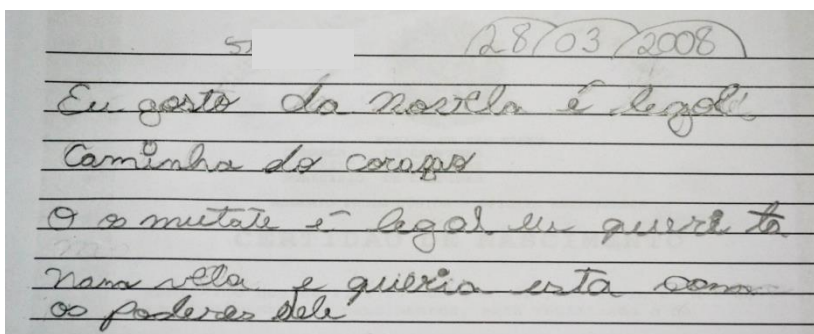 28/03/2008
Eu gosto da novela é legal
Caminha do coração
O os mutate é legal eu queria ta
nana vela e queria esta com
os poderes dele